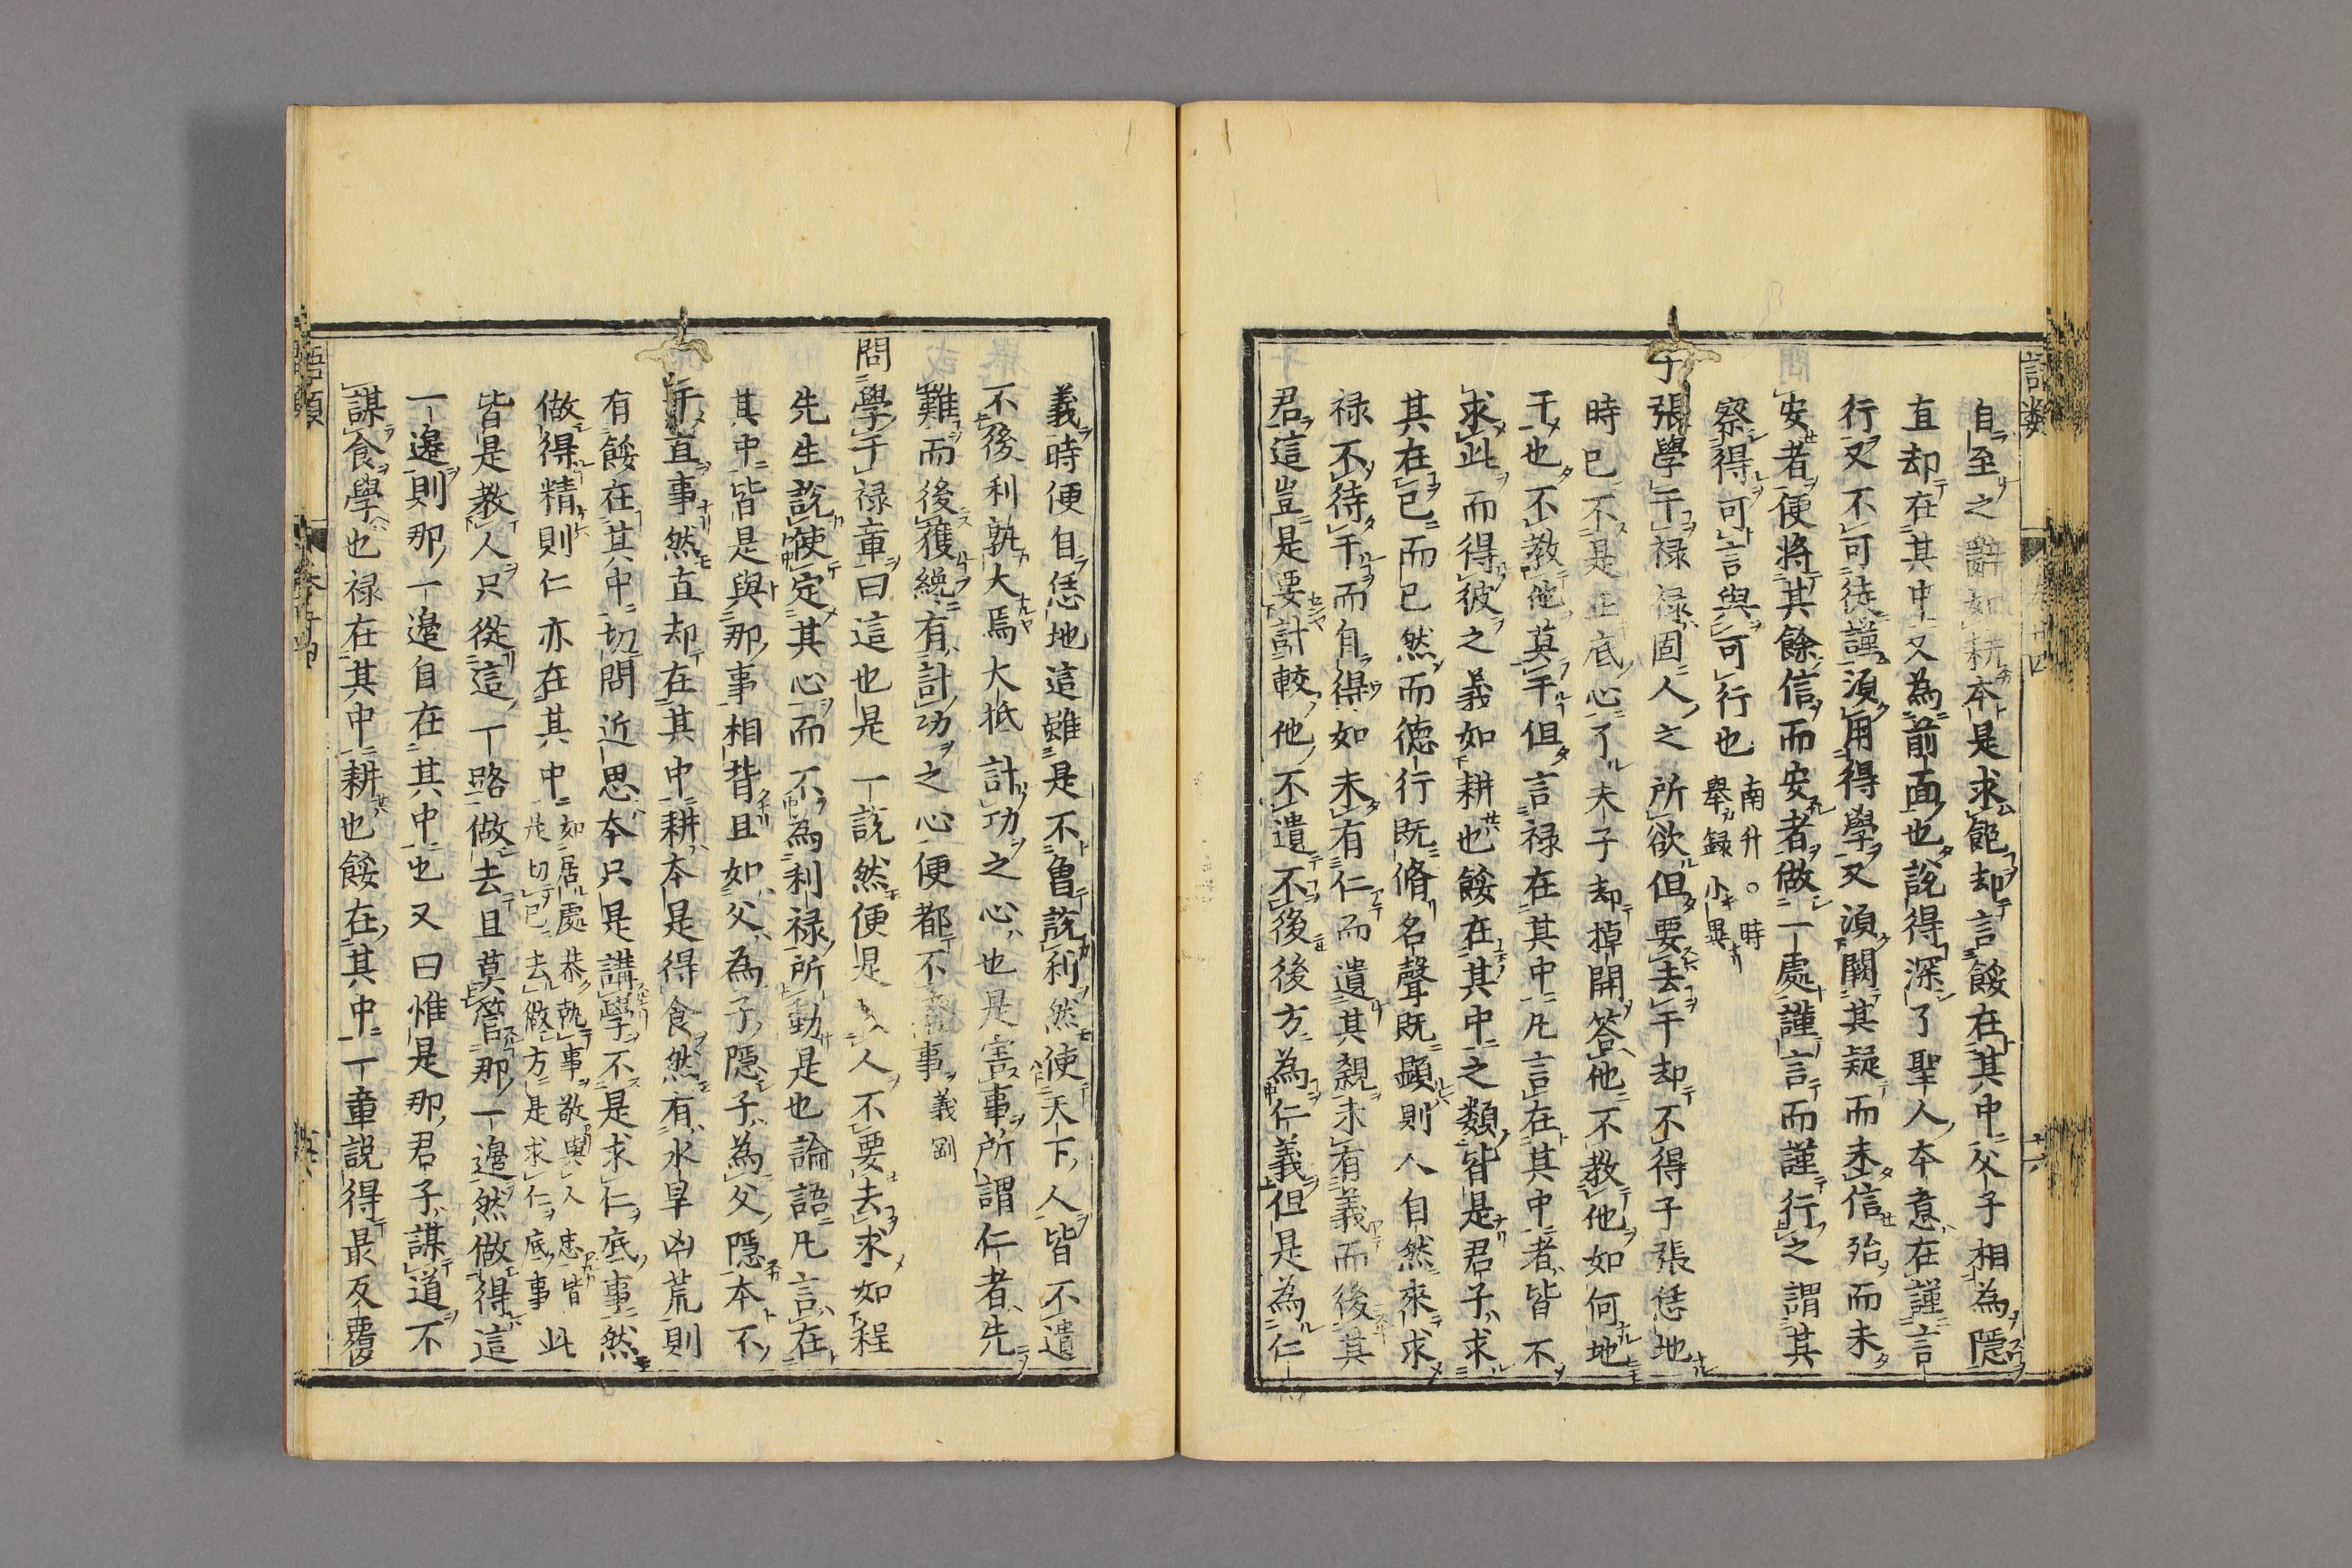 自至之辭如耕本是求飽却言餒在其中父子相為隱
直却在其中又為前面也說得深了聖人本意在謹言
行又不可徒謹湏用得學又湏闕其疑而未信殆而未
安者便將其餘信而安者做一處謹言而謹行之謂其
察得可言與可行也南升○時
舉録小異
子張學干禄禄固人之所欲但要去干却不得子張恁地
時已不是正底心了夫子却掉開答他不教他如何地
干也不教他莫干但言禄在其中凡言在其中者皆不
求此而得彼之義如耕也餒在其中之類皆是君子求
其在已而已然而德行既脩名聲既顯則人自然來求
禄不待干而自得如未有仁而遺其親未有義而後其
君這豈是要計較他不遺不後後方為仁義但是為仁
義時便自恁地這雖是不曾說利然使天下人皆不遺
不後利孰大焉大抵計功之心也是害事所謂仁者先
難而後獲纔有計功之心便都不事義剛
問學干禄章曰這也是一說然便是人不要去求如程
先生說使定其心而不為利禄所動是也論語凡言在
其中皆是與那事相背且如父為子隱子為父隱本不
干直事然直却在其中耕本是得食然有水旱凶荒則
有餒在其中切問近思本只是講學不是求仁底事然
做得精則仁亦在其中如居處恭執事敬與人忠皆
是切已去做方是求仁底事此
皆是教人只從這一路做去且莫管那一邉然做得這
一邉則那一邉自在其中也又曰惟是那君子謀道不
謀食學也禄在其中耕也餒在其中一章說得最反覆